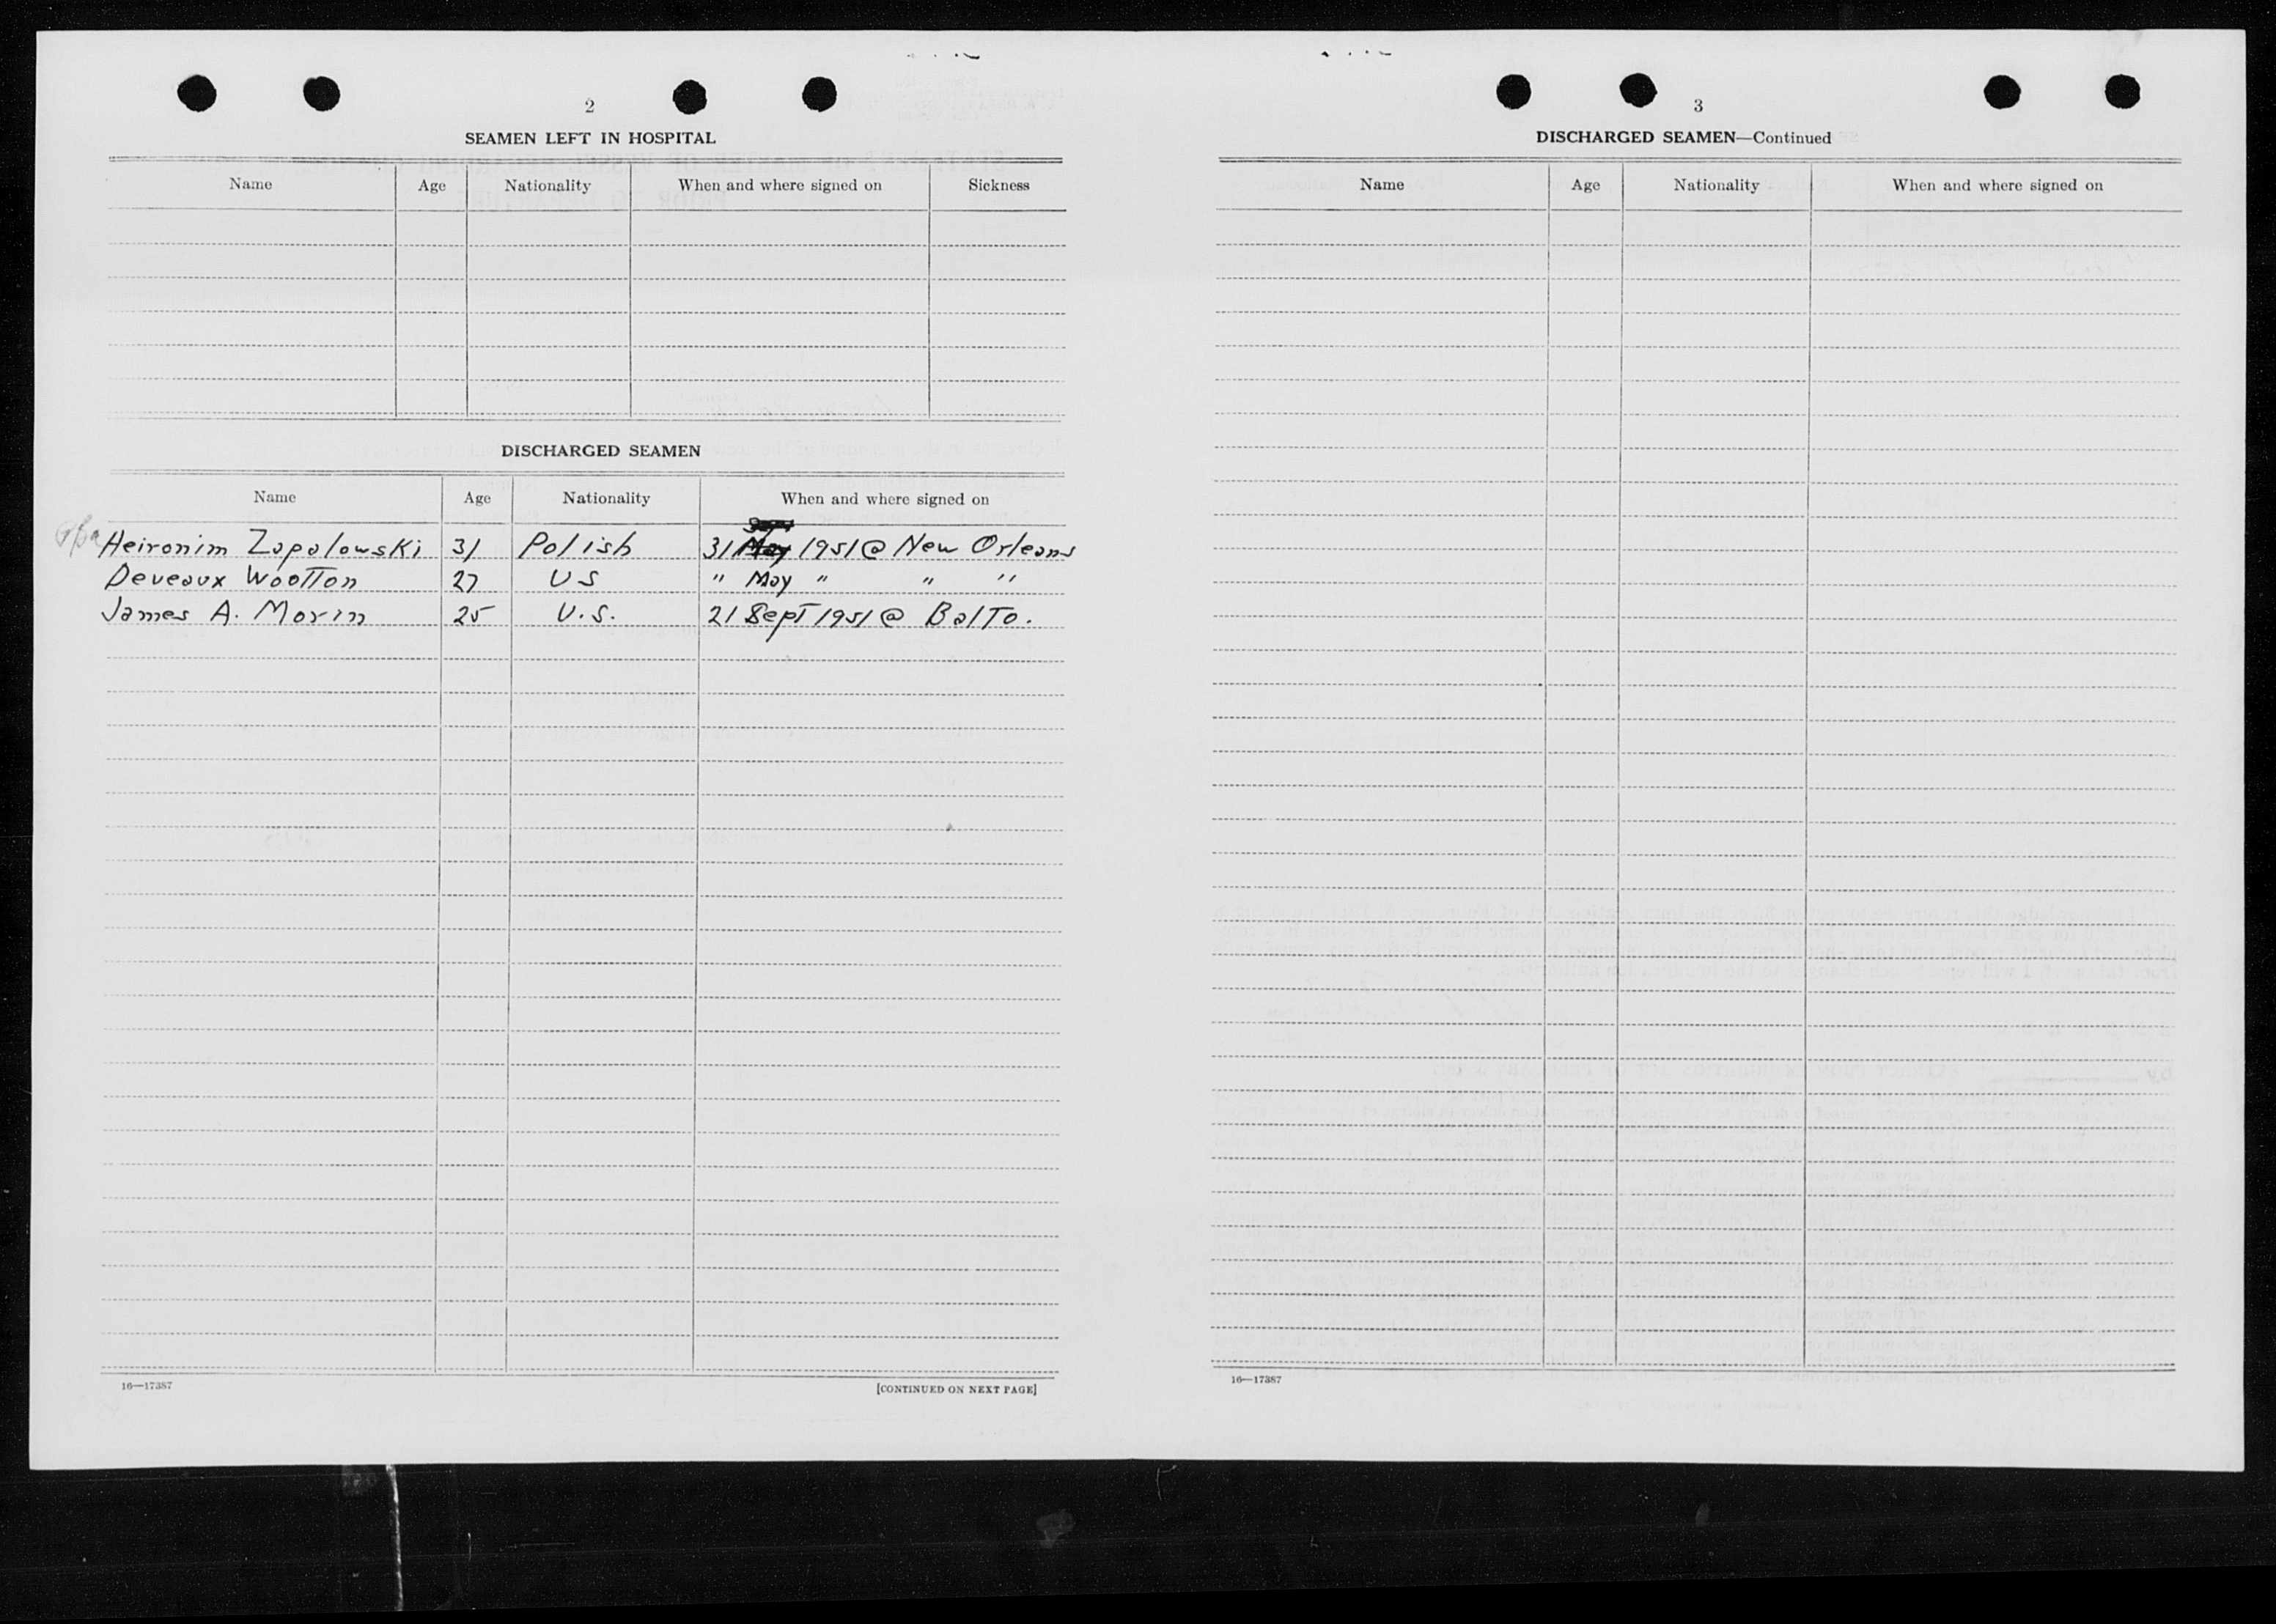 2
SEAMEN LEFT IN HOSPITAL
Name Age Nationality When and where signed on Sickness
DISCHARGED SEAMEN
Name Age Nationality When and where signed on
Heironim Zapalowski 31 Polish 31 May 1951 @ New Orleans
Deveaux Wootton 27 US " May " " "
James A. Morin 25 U.S. 21 Sept 1951 @ Balto.
16—17387
[CONTINUED ON NEXT PAGE]
3
DISCHARGED SEAMEN—Continued
Name Age Nationality When and where signed on
16—17387